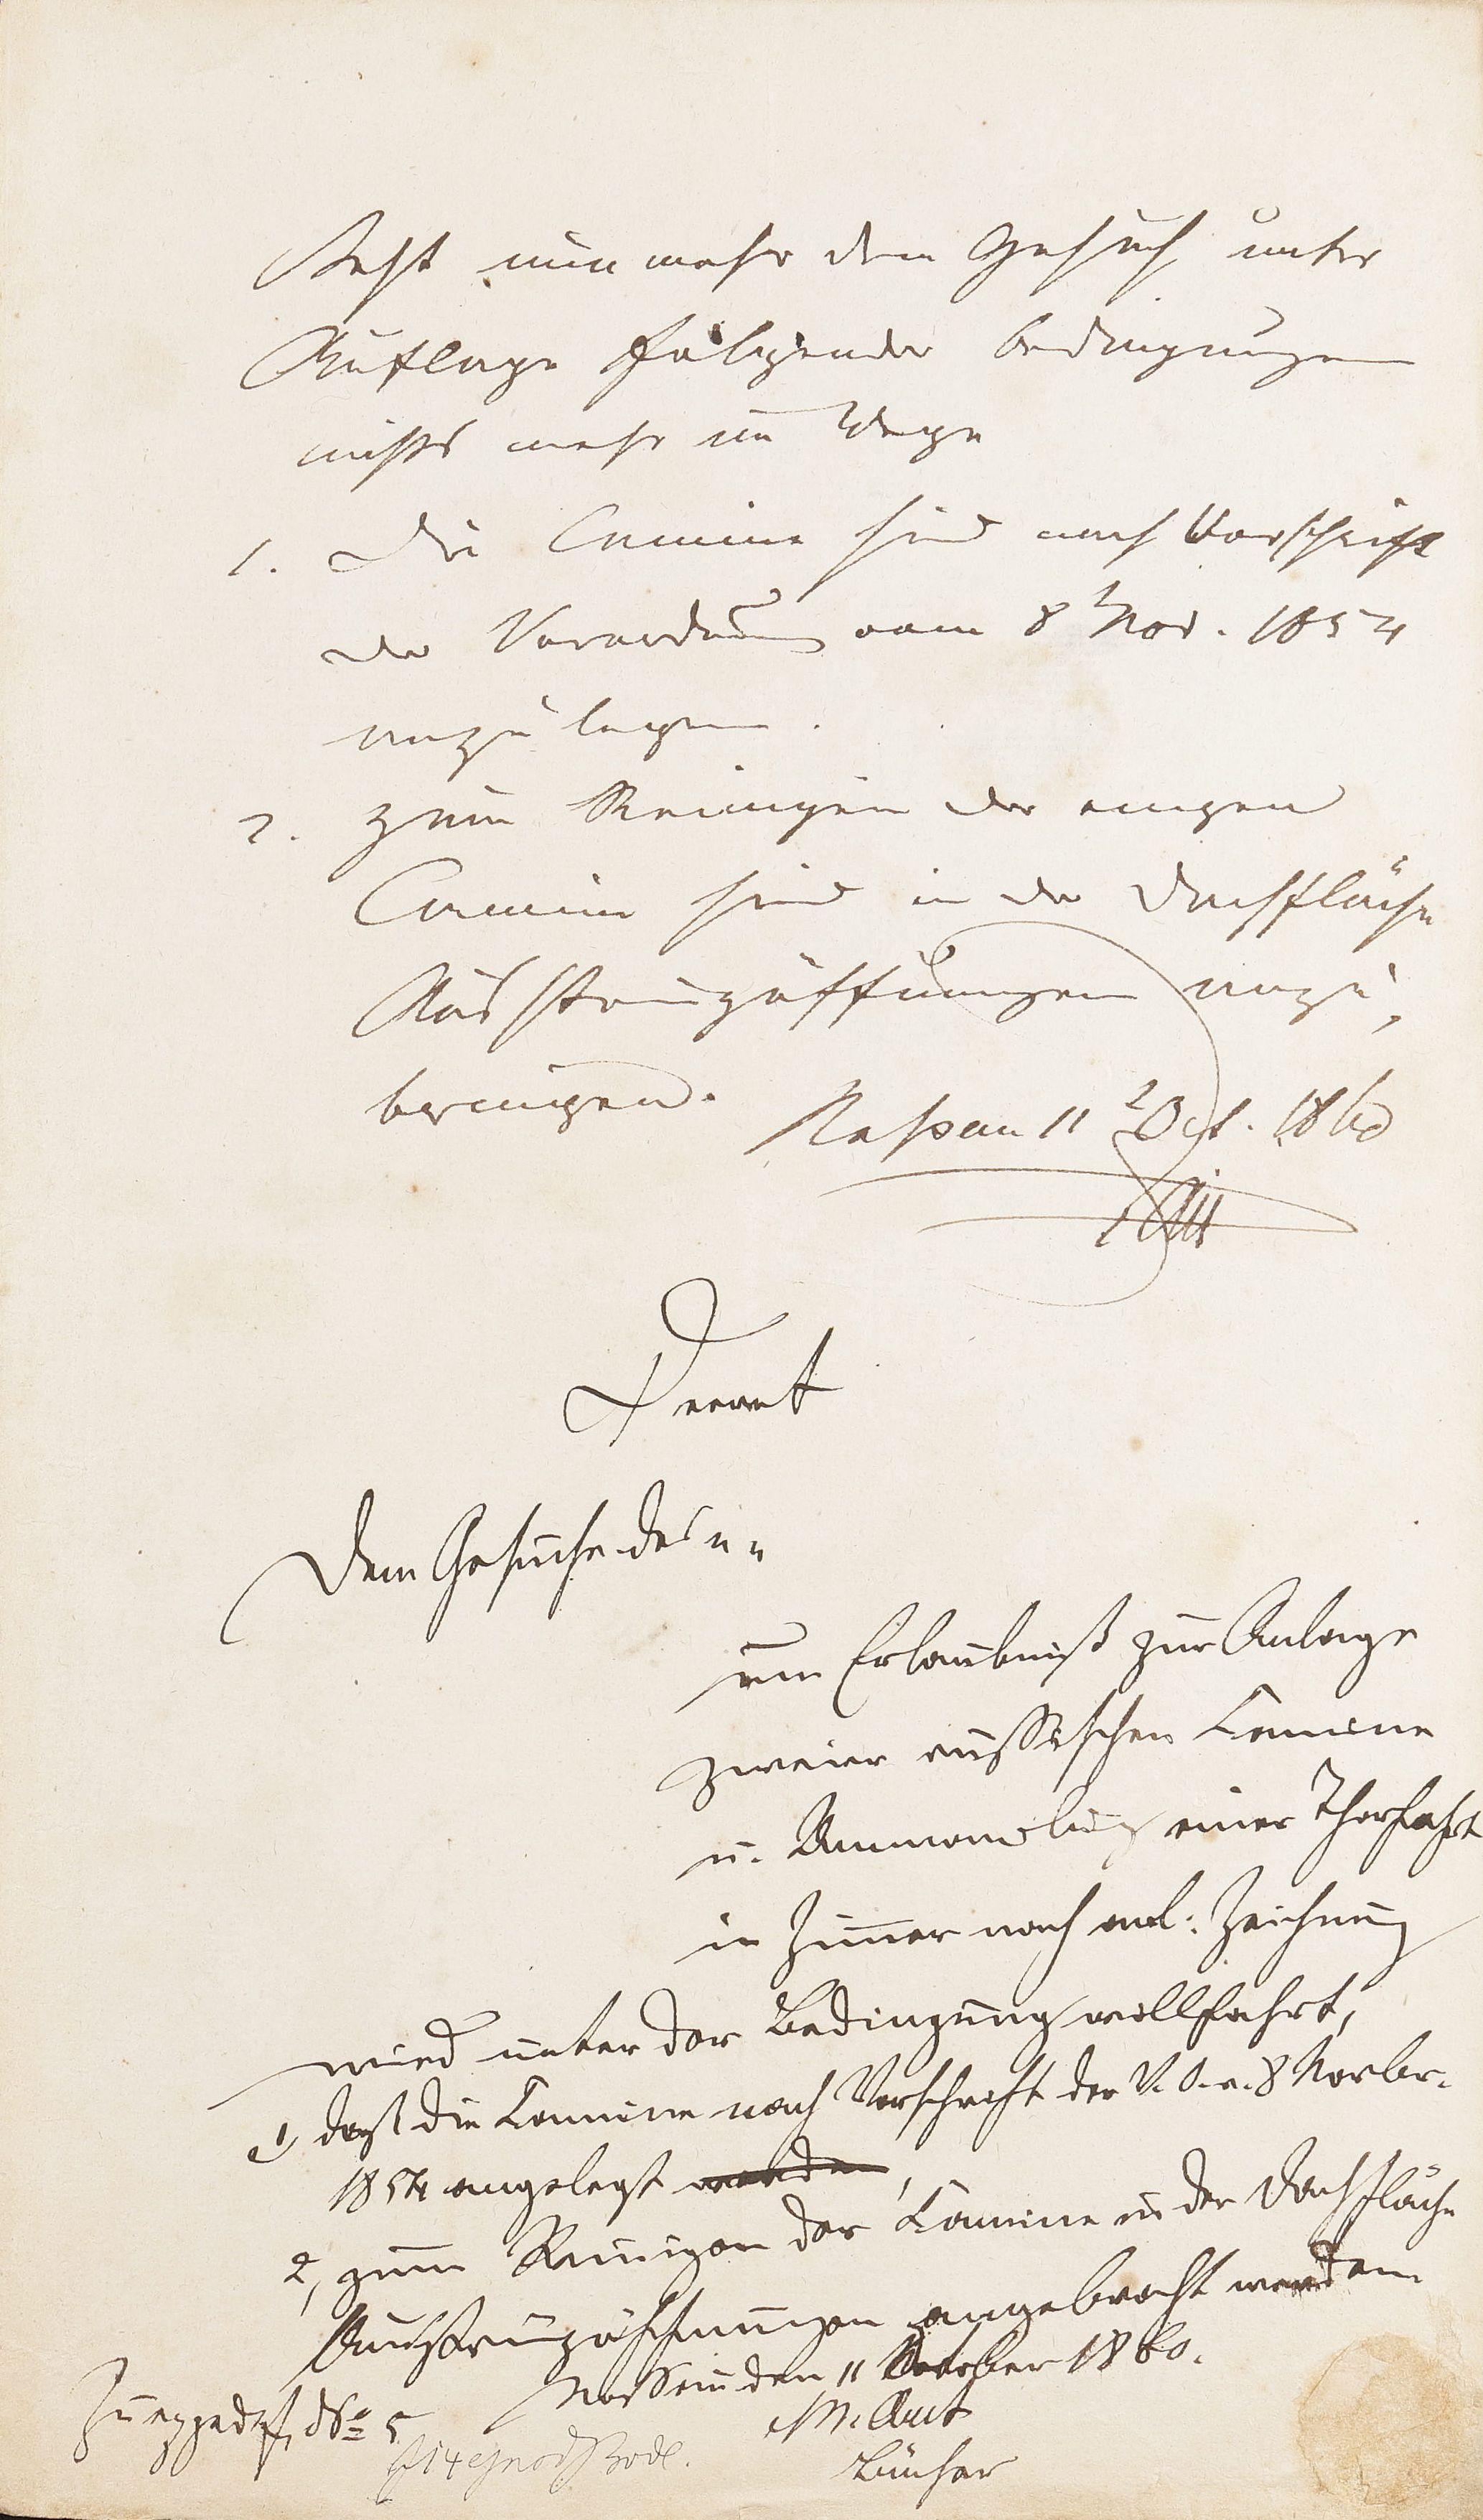 steht nunmehr dem Gesuch unter
Auflage folgender Bedingungen
nichts mehr im Wege
1. Die Camine sind nach Vorschrift
der Verordnung vom 8 Nov. 1854
anzulegen.
2. zum Reinigen der engen
Camine sind in der Dachfläche
Aussteigöffnungen anzu,
bringen.
Nassau 11 Oct. 1860
Decret
Dem Gesuche des
um Erlaubniß zur Anlage
zweier russischen Kamine
u. Umwandlung einer Thorfahrt
in Zimmer nach anl: Zeichnung
wird unter der Bedingung willfahrt,
1) daß die Kamine nach Vorschrift der V. O. v. 8 Novbr.
1854 angelegt werden,
2, zum Reinigen der Kamine in der Dachfläche
Aussteigöffnungen angebracht werden
Nassau den 11 October 1860.
H. M. Amt
5